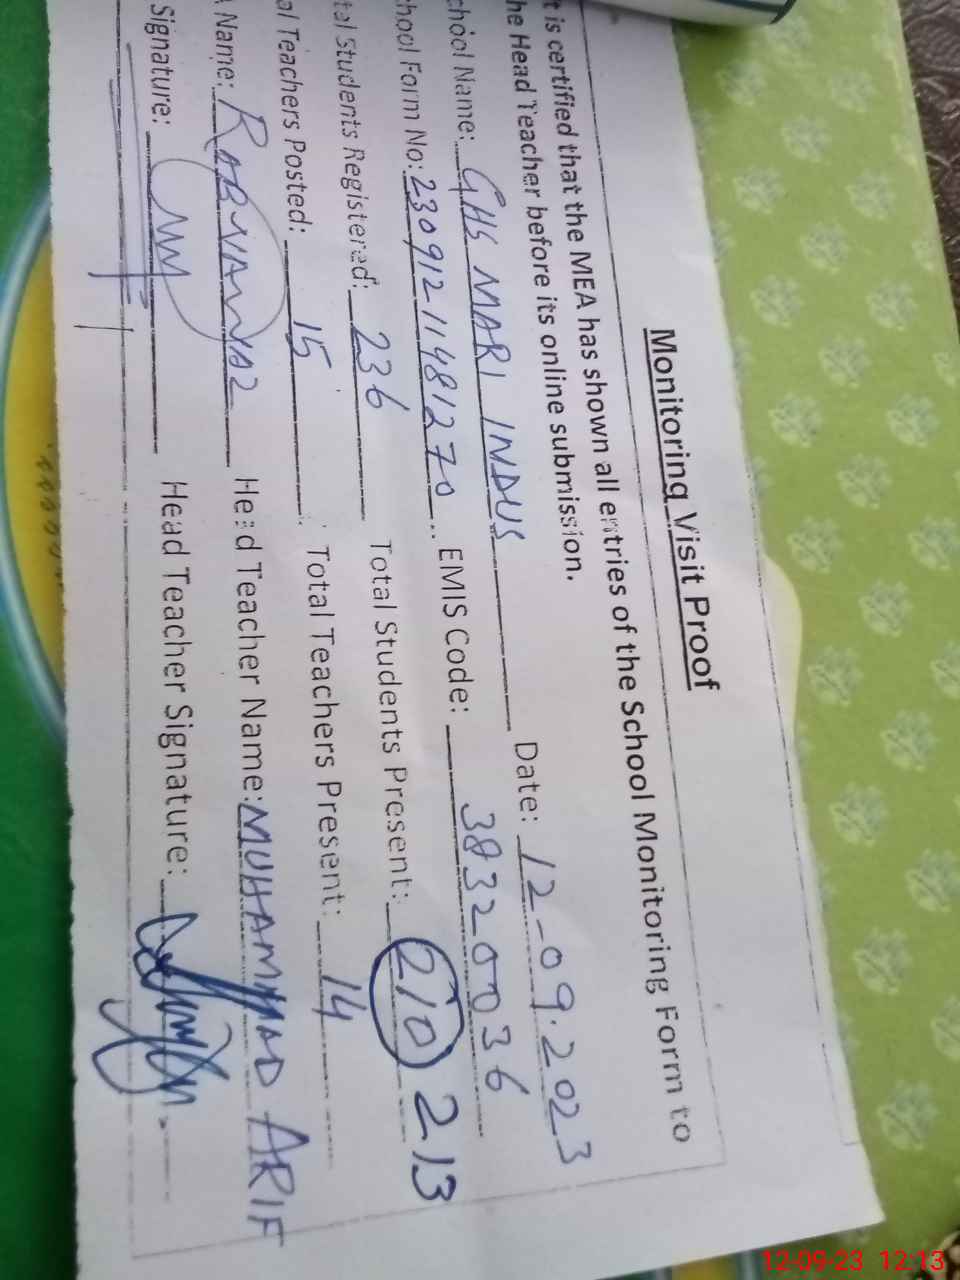 Monitoring Visit Proof
t is certified that the MEA has shown all entries of the School Monitoring Form to
he Head Teacher before its online submission.
chool Name: GHS MARI INDUS Date: 12-09.2023
chool Form No: 23091211481270 EMIS Code: 38320036
tal Students Registered: 236 Total Students Present: 210 213
al Teachers Posted: 15 Total Teachers Present: 14
A Name: Head Teacher Name: MUHAMMAD ARIF
Signature: Head Teacher Signature:
12-09-23 12:13